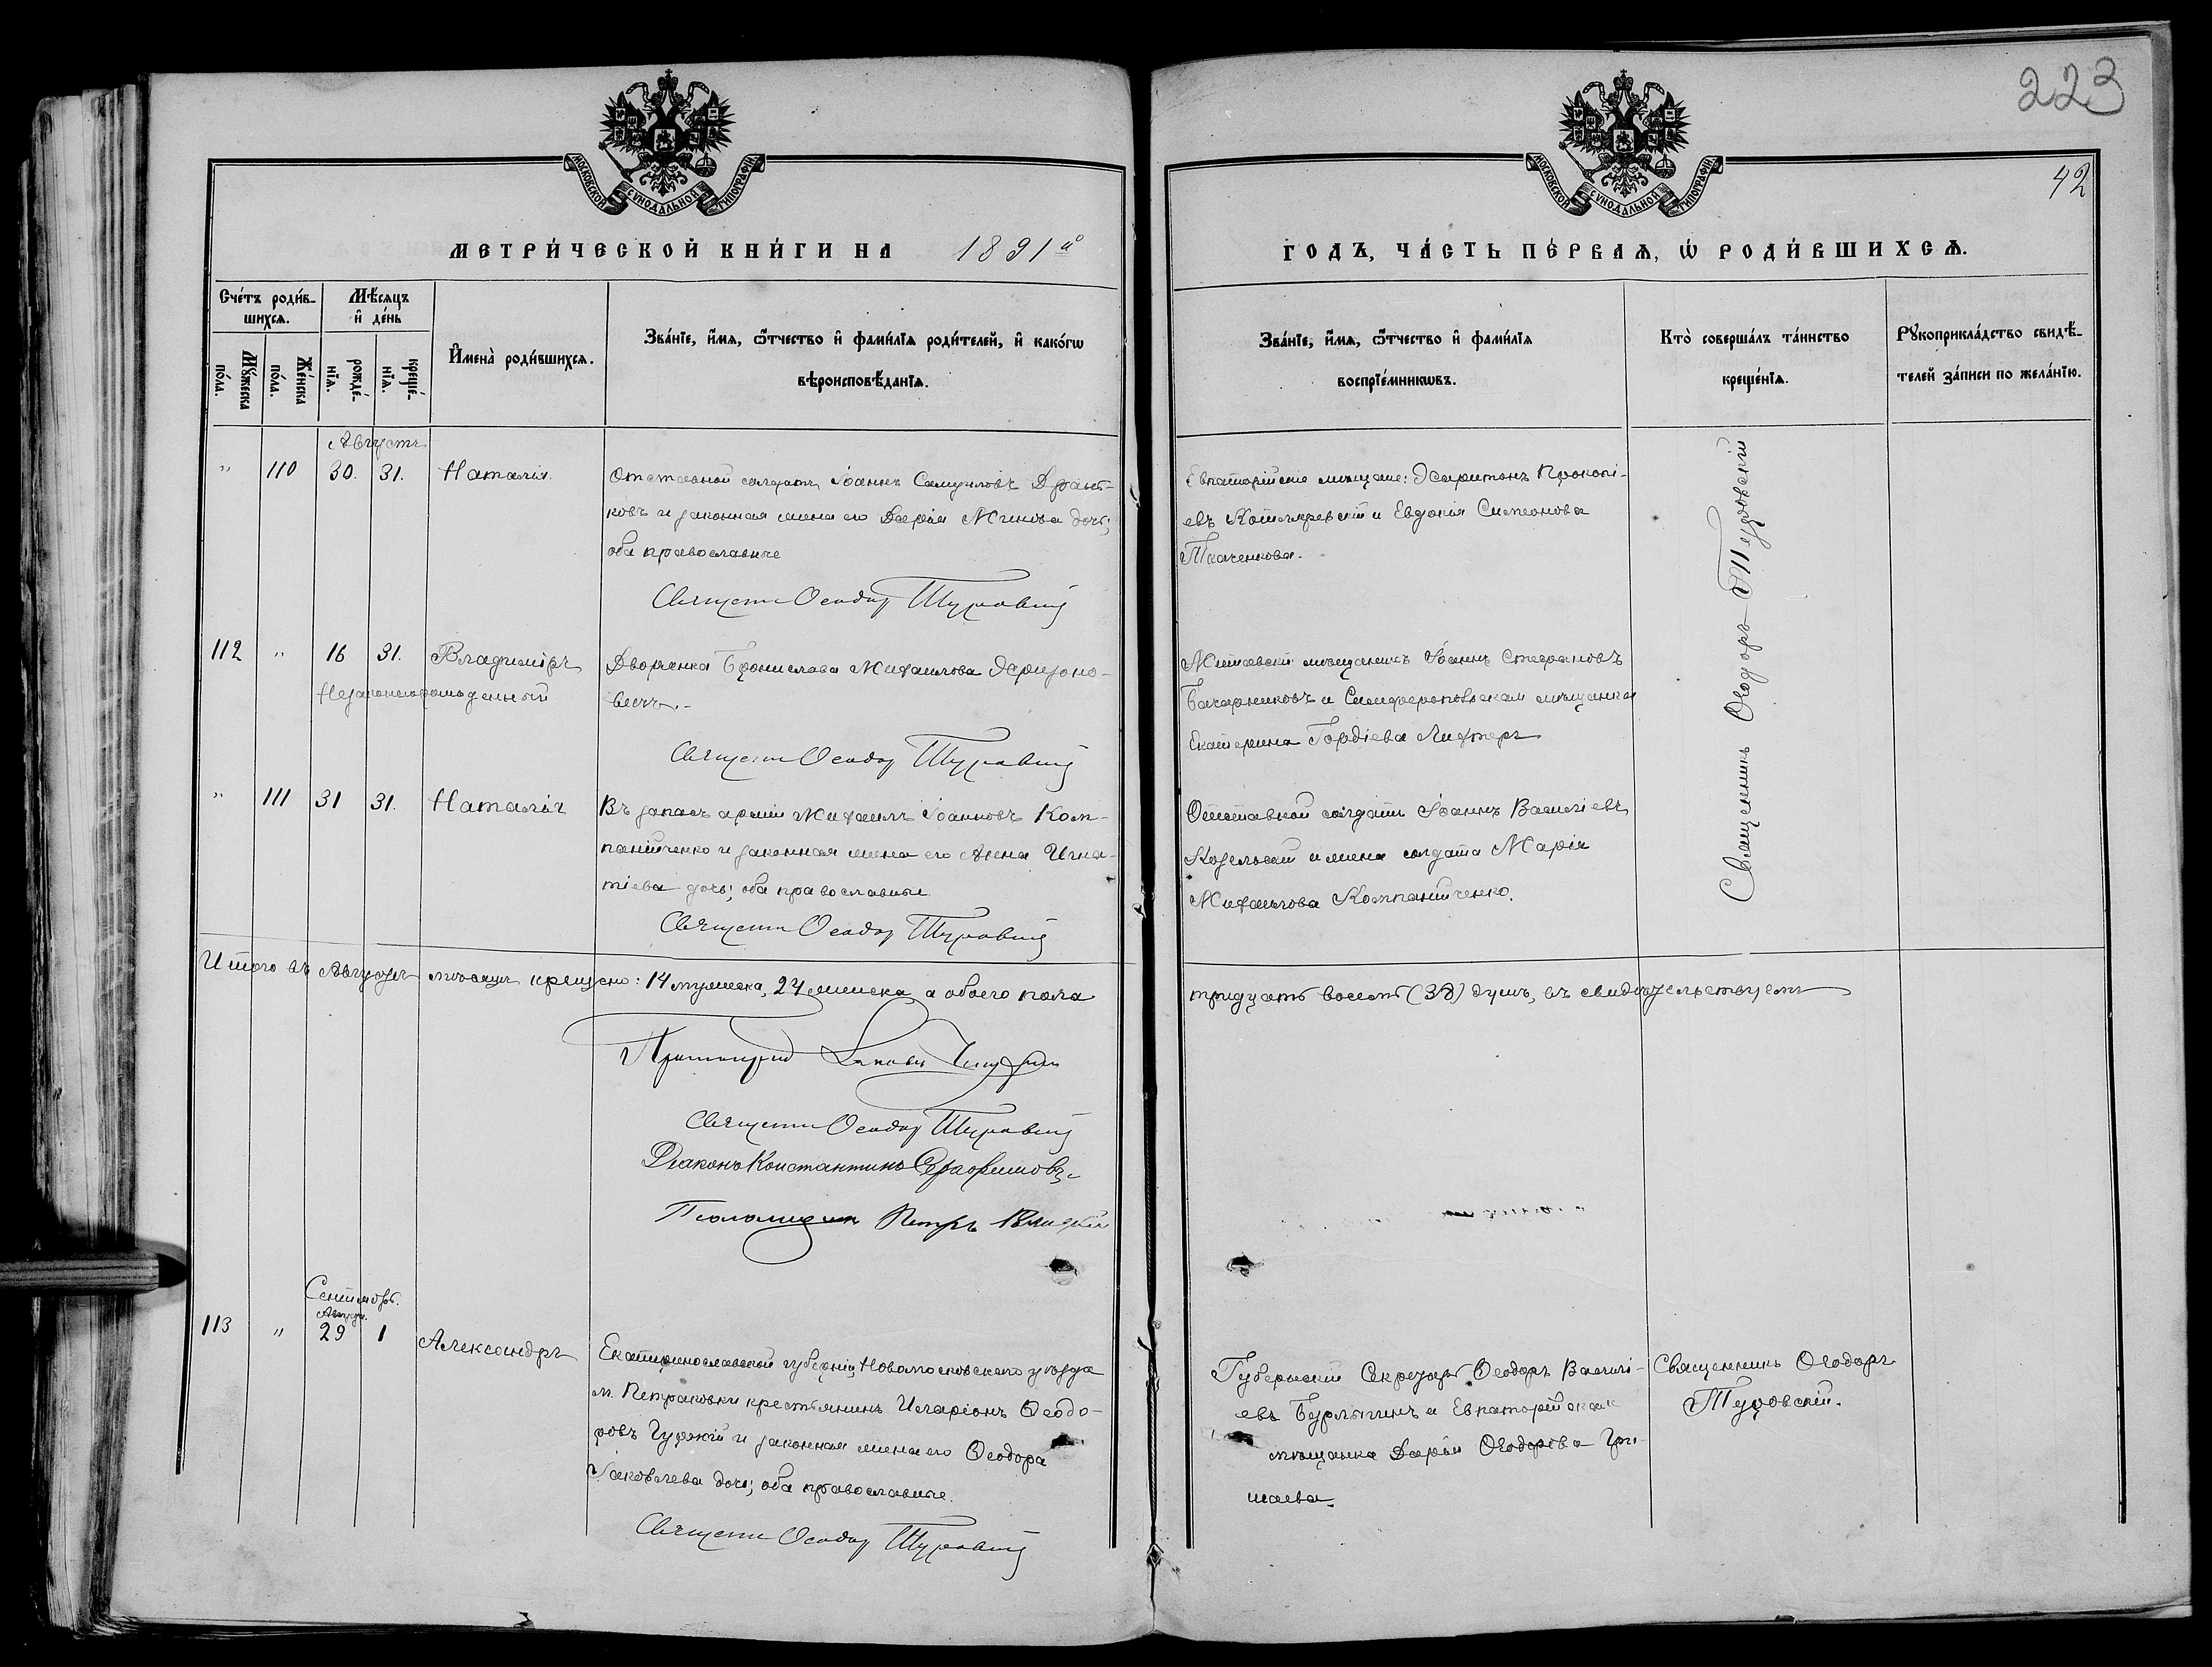 223
42
МОСКОВСКОЙ СѴНОДАЛЬНОЙ ТИПОГРАФІИ
МОСКОВСКОЙ СѴНОДАЛЬНОЙ ТИПОГРАФІИ
МЕТРИ́ЧЕСКОЙ КНИ́ГИ НА 1891й
ГОДЪ, ЧА́СТЬ ПЕ́РВАѦ, Ѡ҆ РОДИ́ВШИХСѦ.
Сче́тъ роди́в-
шихсѧ.
Мѣ́сѧцъ
и҆ де́нь
Мꙋ́жеска
по́ла.
Же́нска
по́ла.
рожде́-
нїѧ.
креще́-
нїѧ.
И҆мена̀ роди́вшихсѧ.
Зва́нїе, и҆́мѧ, ѻ҆́тчество и҆ фами́лїѧ роди́телей, и҆ како́гѡ
вѣроисповѣ́данїѧ.
Зва́нїе, и҆́мѧ, ѻ҆́тчество и҆ фами́лїѧ
воспрїе́мникѡвъ.
Кто̀ соверша́лъ та́инство
креще́нїѧ.
Рꙋкоприкла́дство свидѣ́-
телей за́писи по жела́нїю.
Августъ
" 110 30. 31. Наталія.
Отставной солдатъ Іоаннъ Самуиловъ
ковъ и законная жена его Дарія Минова дочь;
оба православные
Священ Ѳеодор Туровскій
Евпаторійскіе мѣщане: Харитонъ Прокопі-
евъ и Евдокія Симеонова
Ткаченкова.
Священникъ Ѳеодоръ Туровскій
112 " 16 31. Владиміръ
Незаконнорожденный
Дворянка Бронислава Михаилова
вичъ.
Священ Ѳеодор Туровскій
мѣщанинъ Іоаннъ Стефановъ
и Симферопольская мѣщанка
Екатерина Гордіева Лихтеръ
" 111 31 31. Наталія
Въ запасѣ арміи Михаилъ Іоанновъ Ком-
панійченко и законная жена его Анна Игна-
тіева дочь; оба православные
Священ Ѳеодор Туровскій
Отставной солдатъ Іоаннъ Василіевъ
Козельскій и жена солдата Марія
Михаилова Компанійченко.
Итого въ Августѣ мѣсяцѣ крещено: 14 мужеска, 24 женска а обоего пола
тридцать восемь (38) душъ, въ свидѣтельствуемъ
Протоіерей
Священ Ѳеодор Туровскій
Діаконъ Константинъ Серафимовъ
Псаломщикъ Петръ
Сентябрь.
Август.
113 " 29 1 Александръ
Екатеринославской губерніи, Новомосковскаго уѣзда
м. Петраковки крестьянинъ Иларіонъ Ѳеодо-
ровъ и законная жена его Ѳеодора
Іаковлева дочь; оба православные.
Священ Ѳеодор Туровскій
Губернскій Секретарь Ѳеодоръ Василі-
евъ Бурлыгинъ и Евпаторійская
мѣщанка Дарія Ѳеодорова Гри-
шаева.
Священникъ Ѳеодоръ
Туровскій.